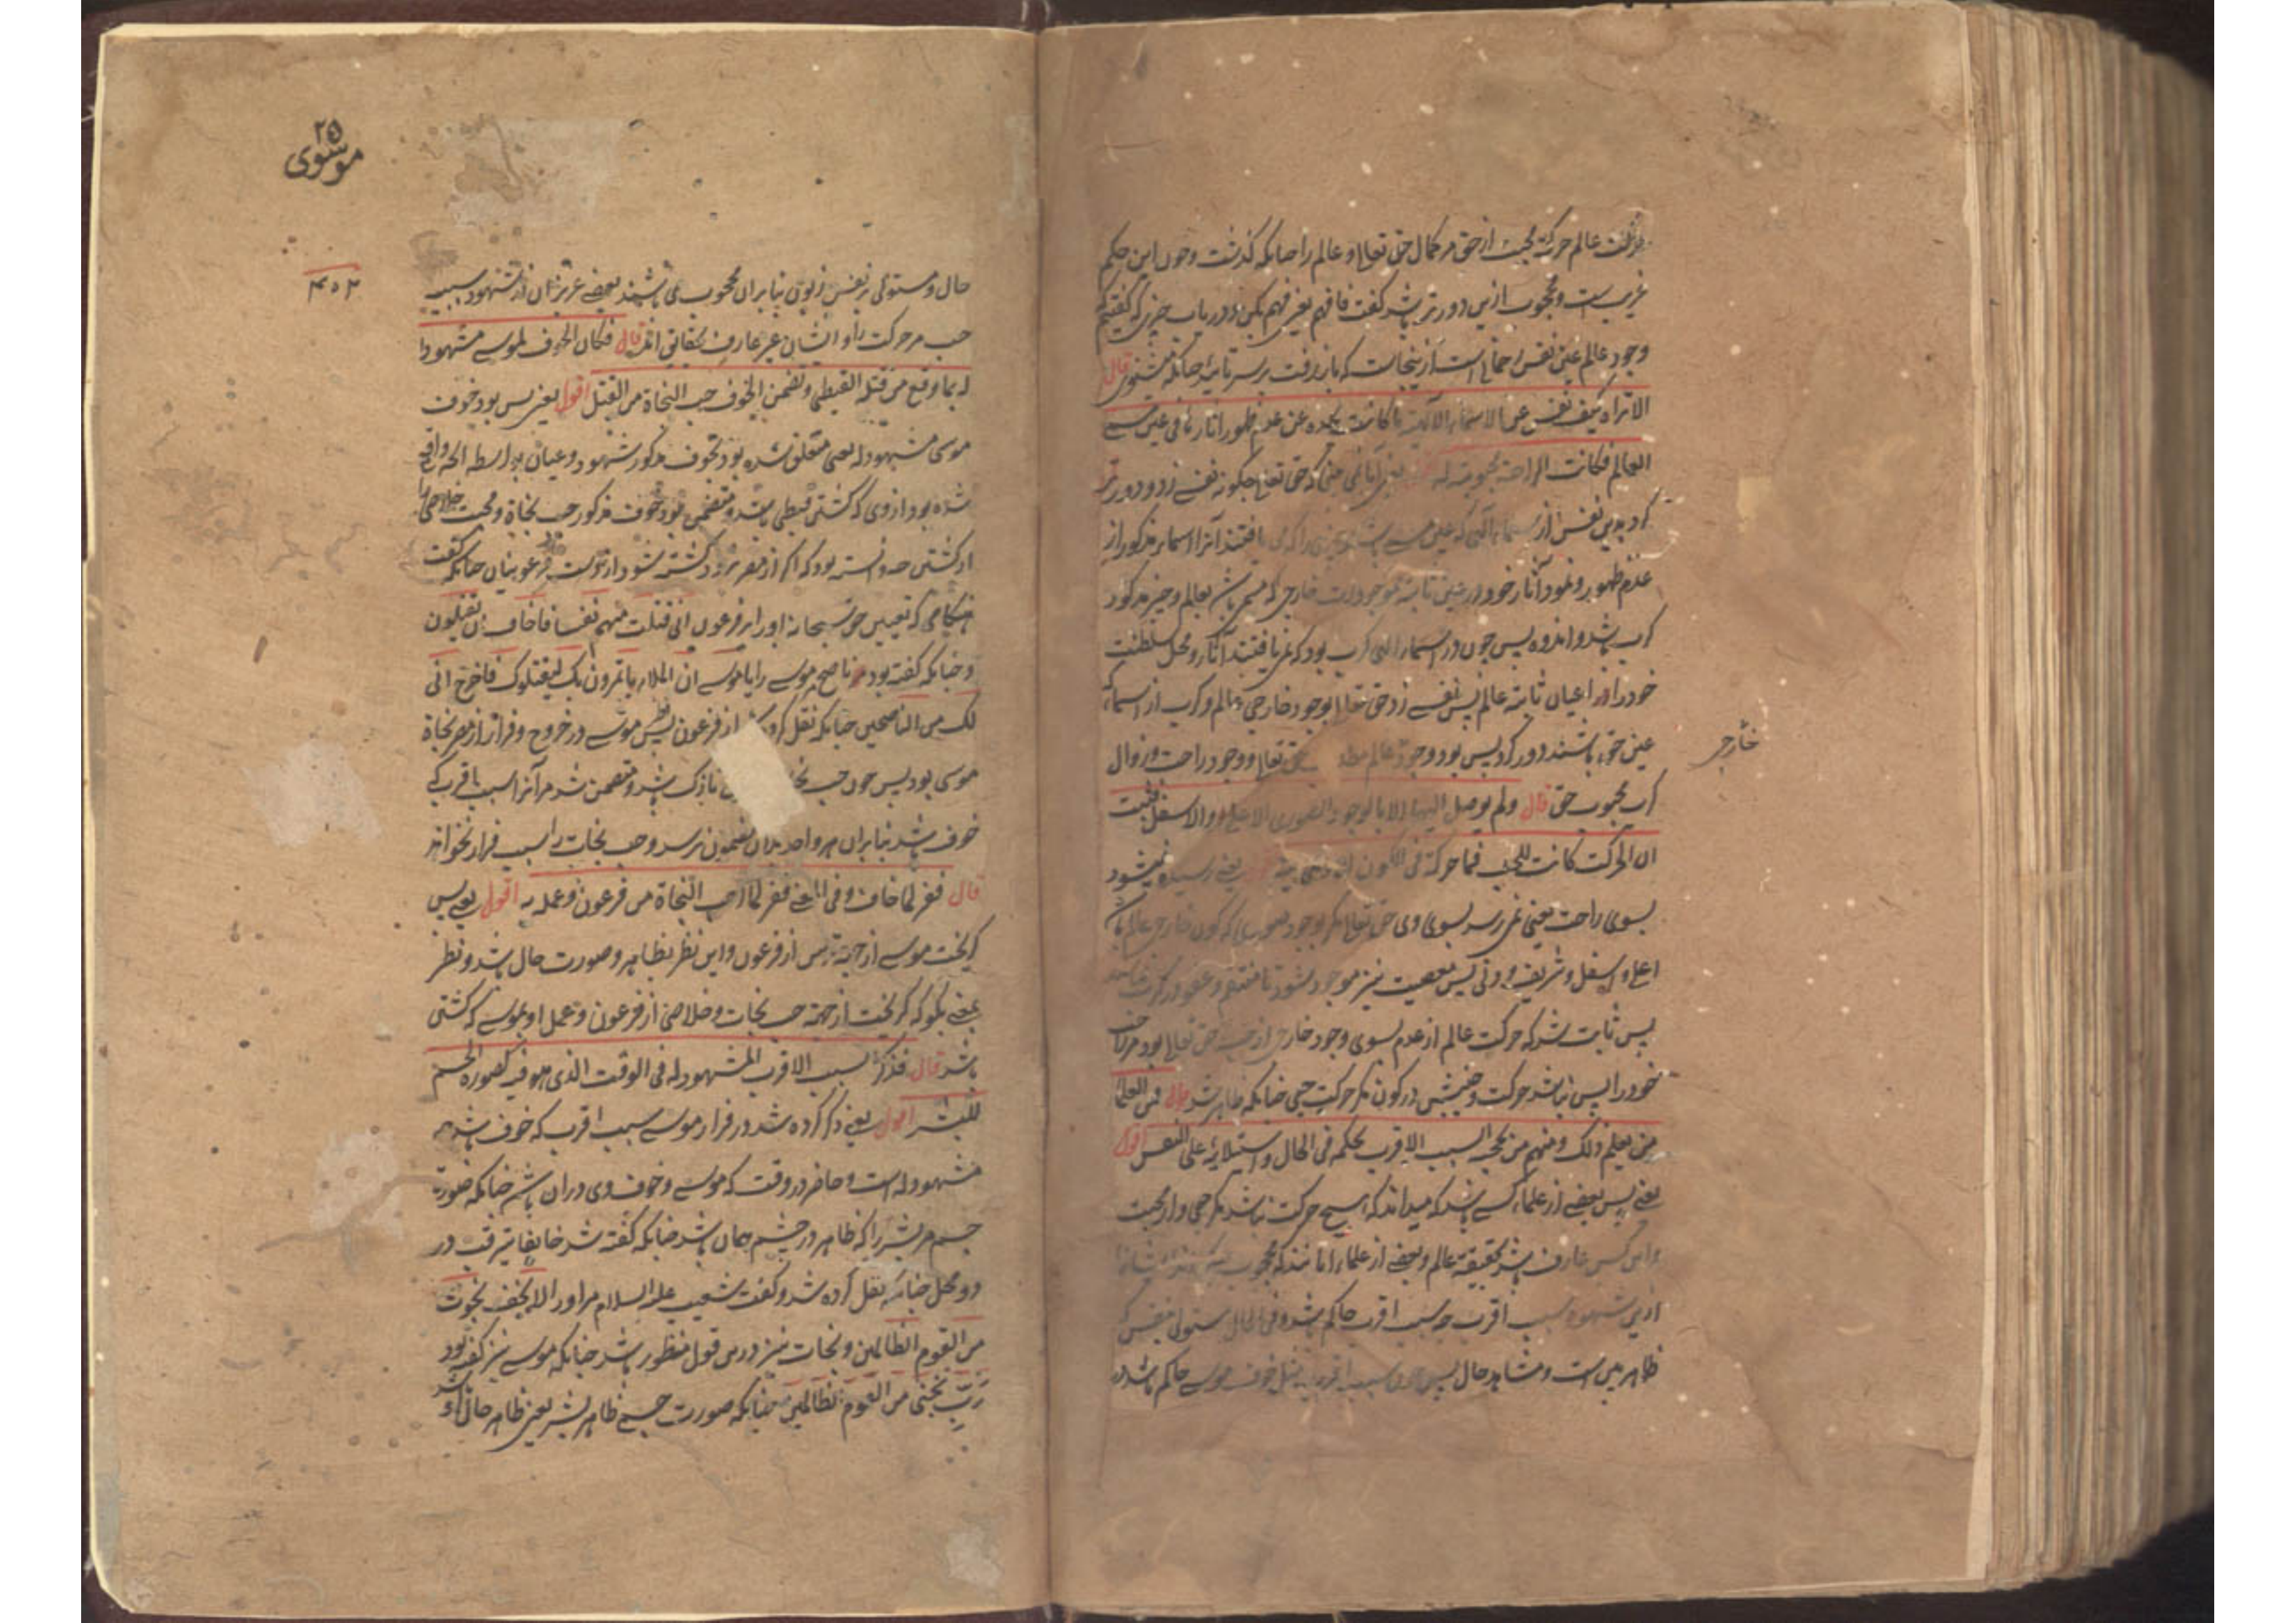 عالم حركة حبية از حق مر كمال حق تعالى و عالم را چنانكه گذشت و چون اين حكم
غريب ست و محجوب ازين دورتر باشد گفت فافهم يعنى فهم بكن و درياب چيزى كه گفتيم
وجود عالم عين نفس رحمانى است ازينجاست كه باز رفت برسر تائيد چنانكه قال
الا تراه كيف نفس عن الاسماء الالهية ما كانت تجده من عدم ظهور اثارها فى عين مسمى
العالم فكانت الراحة محبوبة له يعنى آيا نمى بينى كه حق تعالى چگونه نفس زد و دور
كرد بدين نفس از اسماء الهى كه عين مسمى را كه مى يافتند آنرا اسماء مذكور از
عدم ظهور و نمود آثار خود در عين ثابتة موجودات خارجى كه مسمى باشد بعالم و چيز مذكور
كرب باشد و اندوه پس چون در اسماء الهى كرب بود كه نمى يافتند آثار و محل سلطنت
خود را در اعيان ثابته عالم پس نفس زد حق تعالى بوجود خارجى عالم و كرب از اسماء كه
خارجى
عين حق باشند دور كرد پس بود وجود عالم حق تعالى و وجود راحت و زوال
كرب محبوب حق قال ولم يوصل اليها الا بالوجود الصورى الاعلى والاسفل فثبت
ان الحركت كانت للحب فما حركة فى الكون الا وهى حبية يعنى رسيده نميشود
بسوى راحت يعنى نمى رسد بسوى وى حق تعالى مگر بوجود صورى كه كون خارجى عالم
اعلى و اسفل و شريف و دنى پس معصيت نيز موجود بشود تا منتقم و غفور
پس ثابت شد كه حركت عالم از عدم بسوى وجود خارجى از حب حق تعالى بود
خود را پس نباشد حركت و جنبش در كون مگر حركت حبى چنانكه ظاهر شد قال فمن العلماء
من يعلم ذلك ومنهم من يحجبه السبب الاقرب لحكمه فى الحال واستيلائه على النفس اقول
يعنى پس بعضى از علماء كسى باشد كه ميداند كه هيچ حركت نباشد مگر حبى و از محبت
و اين كس عارف باشد بحقيقة عالم و بعضى از علماء آنانند كه محجوب
ازين شهود سبب اقرب چه سبب اقرب حاكم باشد و فى الحال مستولى بنفس كه
ظاهر بين است و مشاهد حال پس چون سبب اقرب مثل خوف موسى حاكم باشد در
٢٥
موسوى
٤٥٢
حال و مستولى بر نفس زبون بنابران محجوب مى باشند بعضى غير عزيزان از شهود سبب
حب مر حركت را و ايشان غير عارف بحقائق اند قال فكان الخوف لموسى مشهودا
له بما وقع من قتله القبطى وتضمن الخوف حب النجاة من القتل اقول يعنى پس بود خوف
موسى مشهود له يعنى متعلق شده بود بخوف مذكور شهود و عيان بواسطه آنچه واقع
شده بود از وى كه كشتن قبطى باشد و متضمن بود خوف مذكور حب نجاة و محبت خلاصى را
از كشتن چه دانسته بود كه اگر از مصر نرود كشته شود از دست فرعونيان چنانكه گفت
هنگامى كه تعيين حق سبحانه او را بر فرعون انى قتلت منهم نفسا فاخاف ان يقتلون
و چنانكه گفته بود مر ناصح موسى را يا موسى ان الملاء ياتمرون بك ليقتلوك فاخرج انى
لك من الناصحين چنانكه نقل كرده از فرعون پس موسى در خروج و فرار از مصر نجاة
موسى بود پس چون حب نازك باشد و متضمن شد مر آنرا سبب اقرب كه
خوف باشد بنابران هر واحد بدان مضمون نرسد و حب نجات را سبب فرار نخواند
قال ففر لما خاف وفى المعنى ففر لما احب النجاة من فرعون وعمله به اقول يعنى پس
گريخت موسى از جهة ترس از فرعون و اين نظر بظاهر و صورت حال باشد و نظر
بمعنى بگو كه گريخت از جهة حب نجات و خلاصى از فرعون و عمل او بموسى كه كشتن
باشد قال فذكر السبب الاقرب المشهود له فى الوقت الذى هو فيه كصورة الجسم
للبشر اقول يعنى ذكر كرده شد در فرار موسى سبب اقرب كه خوف باشد چه
مشهود له است و حاضر در وقت كه موسى و خوف وى دران باشد چنانكه صورت
جسم مر بشر را كه ظاهر در چشم همان باشد چنانكه گفته شد خايفا يترقب در
دو محل چنانكه نقل كرده شد و گفت شعيب عليه السلام مر او را لا تخف نجوت
من القوم الظالمين و نجات نيز درين قول منظور باشد چنانكه موسى نيز گفته بود
رب نجنى من القوم الظالمين چنانكه صورت جسم ظاهر بشر يعنى ظاهر حال